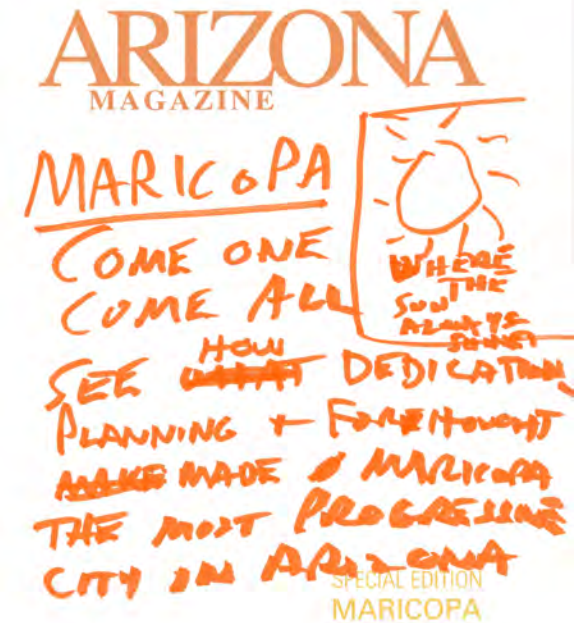 ARIZONA
MAGAZINE
MARICOPA
COME ONE
COME ALL
WHERE
THE
SUN
ALWAYS
SHINES
HOW
SEE WHAT DEDICATION,
PLANNING + FORETHOUGHT
MAKE MADE MARICOPA
THE MOST PROGRESSIVE
CITY IN ARIZONA
SPECIAL EDITION
MARICOPA